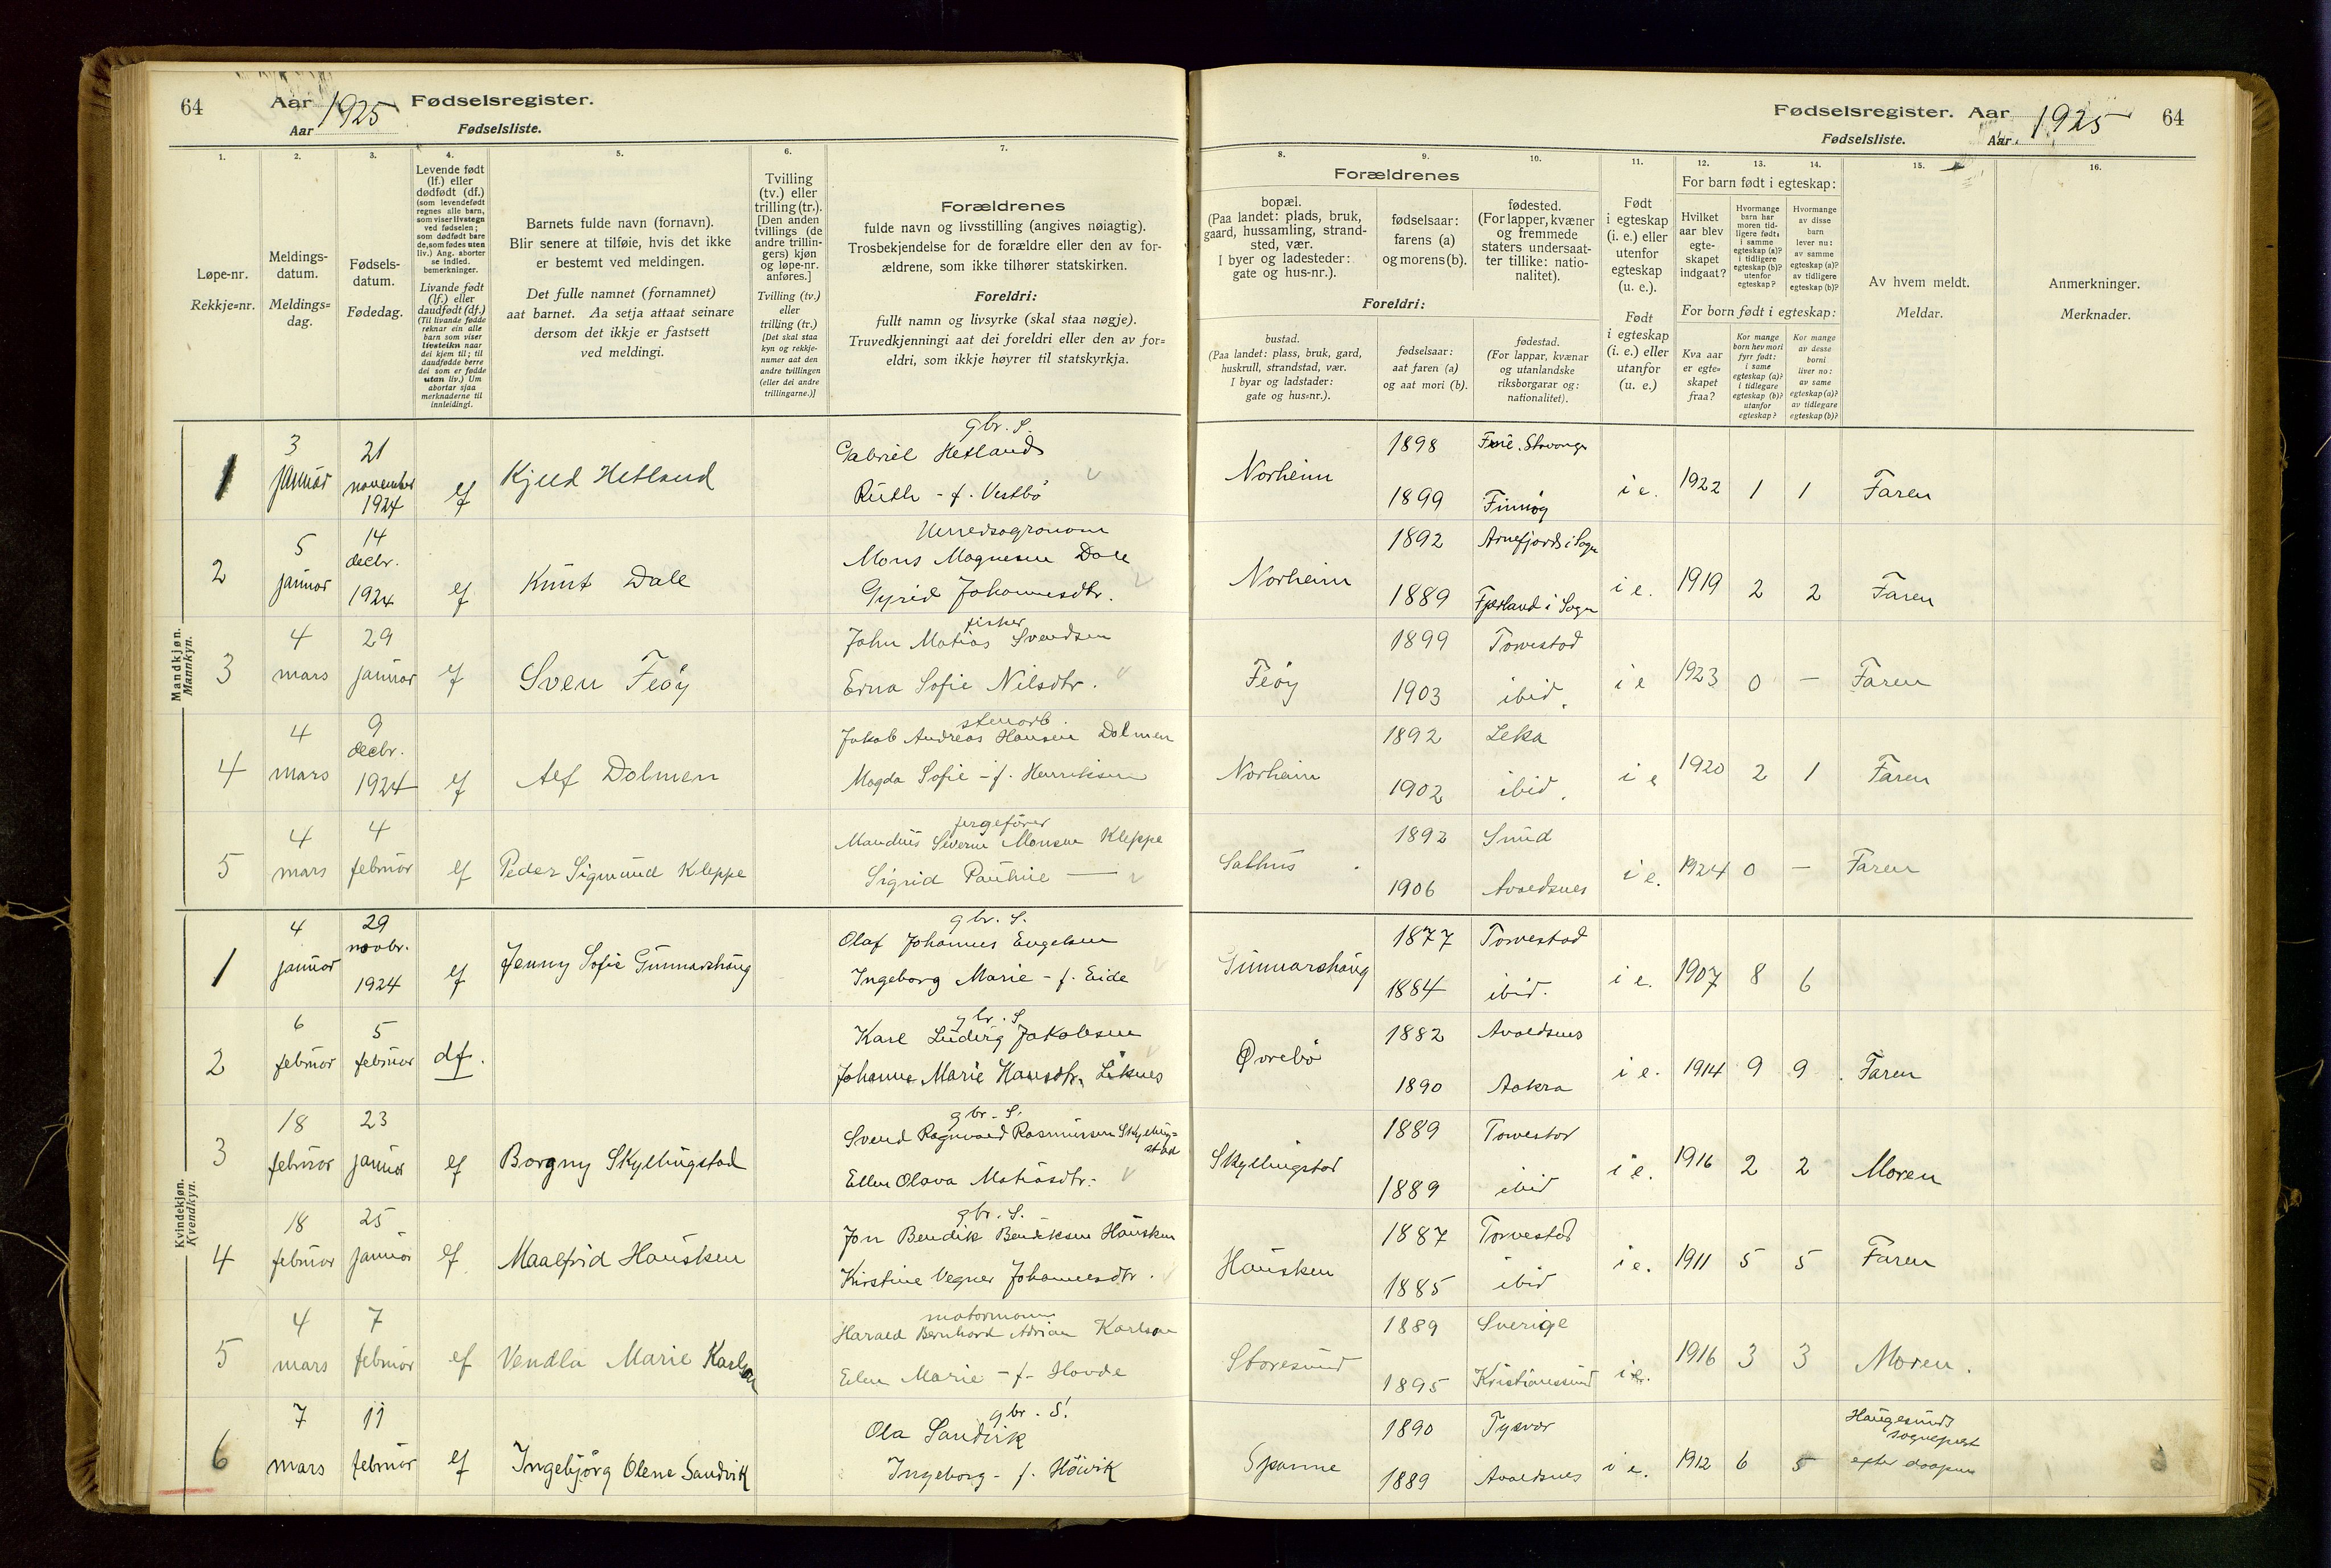 64
Aar 1925 Fødselsregister.
Aar Fødselsliste.
Fødselsregister. Aar 1925 64
Fødselsliste. Aar
1.
Løpe-nr.
Rekkje=nr.
2.
Meldings-
datum.
Meldings=
dag.
3.
Fødsels-
datum.
Fødedag.
4.
Levende født
(lf.) eller
dødfødt (df.)
(som levendefødt
regnes alle barn,
som viser livstegn
ved fødselen;
som dødfødt bare
de, som fødes uten
liv.) Ang. aborter
se indled.
bemerkninger.
Livande født
(lf.) eller
daudfødt (df.)
(Til livande fødde
reknar ein alle
barn som viser
livsteikn naar
dei kjem til; til
daudfødde berre
dei som er fødde
utan liv.) Um
abortar sjaa
merknaderne til
innleidingi.
5.
Barnets fulde navn (fornavn).
Blir senere at tilføie, hvis det ikke
er bestemt ved meldingen.
Det fulle namnet (fornamnet)
aat barnet. Aa setja attaat seinare
dersom det ikkje er fastsett
ved meldingi.
6.
Tvilling
(tv.) eller
trilling (tr.).
[Den anden
tvillings (de
andre trillin-
gers) kjøn
og løpe-nr.
anføres.]
Tvilling (tv.)
eller
trilling (tr.)
[Det skal staa
kyn og rekkje-
numer aat den
andre tvillingen
(eller dei andre
trillingarne.)]
7.
Forældrenes
fulde navn og livsstilling (angives nøiagtig).
Trosbekjendelse for de forældre eller den av for-
ældrene, som ikke tilhører statskirken.
Foreldri:
fullt namn og livsyrke (skal staa nøgje).
Truvedkjenningi aat dei foreldri eller den av for=
eldri, som ikkje høyrer til statskyrkja.
Forældrenes
8.
bopæl.
(Paa landet: plads, bruk,
gaard, hussamling, strand-
sted, vær.
I byer og ladesteder:
gate og hus-nr.).
9.
fødselsaar:
farens (a)
og morens (b).
10.
fødested.
(For lapper, kvæner
og fremmede
staters undersaat-
ter tillike: natio-
nalitet).
Foreldri:
bustad.
(Paa landet: plass, bruk, gard,
huskrull, strandstad, vær.
I byar og ladstader:
gate og hus=nr.).
fødselsaar:
aat faren (a)
og aat mori (b).
fødestad.
(For lappar, kvænar
og utanlandske
riksborgarar og:
nationalitet).
11.
Født
i egteskap
(i. e.) eller
utenfor
egteskap
(u. e.).
Født
i egteskap
(i. e.) eller
utanfor
(u. e.)
For barn født i egteskap:
12.
Hvilket
aar blev
egte-
skapet
indgaat?
13.
Hvormange
barn har
moren tid-
ligere født:
i samme
egteskap (a)?
i tidligere
egteskap (b)?
utenfor
egteskap?
14.
Hvormange
av disse
barn
lever nu:
av samme
egteskap (a)?
av tidligere
egteskap (b)?
For born født i egteskap:
Kva aar
er egte=
skapet
fraa?
Kor mange
born hev mori
fyrr født:
i same
egteskap (a)?
i tidlegare
egteskap (b)?
utanfor
egteskap?
Kor mange
av desse
borni
liver no:
av same
egteskap (a)?
av tidlegare
egteskap (b)?
15.
Av hvem meldt.
Meldar.
16.
Anmerkninger.
Merknader.
Mandkjøn.
Mannkyn.
1 3 januar 21 november 1924 lf Kjell Hetland
gbr. S.
Gabriel Hetland
Ruth - f. Vestbö
Norheim 1898 Stavanger
1899 Finnöy i e. 1922 1 1 Faren
2 5 januar 14 decbr. 1924 lf Knut Dale
Herredsagronom
Mons Magnesen Dale
Gyrid Johannesdtr.
Norheim 1892 Arnefjord i Sogn
1889 Fjærland i Sogn i e. 1919 2 2 Faren
3 4 mars 29 januar lf Sven Feöy
fisker
John Matias Svendsen
Erna Sofie Nilsdtr.
Feöy 1899 Torvestad
1903 ibid. i e 1923 0 — Faren
4 4 mars 9 decbr. 1924 lf Alf Dolmen
stenarb.
Jakob Andreas Hansen Dolmen
Magda Sofie - f. Henriksen
Norheim 1892 Leka
1902 ibid. i e 1920 2 1 Faren
5 4 mars 4 februar lf Peder Sigmund Kleppe
fergefører
Severin Monsen Kleppe
Sigrid Pauline —
Salhus 1892 Sund
1906 Avaldsnes i e. 1924 0 — Faren
Kvindekjøn.
Kvendkyn.
1 4 januar 29 novbr. 1924 lf Jenny Sofie Gunnarshaug
gbr. S.
Olaf Johannes Engelsen
Ingeborg Marie - f. Eide
Gunnarshaug 1877 Torvestad
1884 ibid. i e. 1907 8 6
2 6 februar 5 februar df.
gbr. S
Karl Ludvig Jakobsen
Johanne Marie Hansdtr. Liknes
Øvrebö 1882 Avaldsnes
1890 Aakra i e. 1914 9 9 Faren
3 18 februar 23 januar lf Borgny Skyllingstad
gbr. S.
Svend Ragnvald Rasmussen Skylling=
stad
Ellen Olava Matiasdtr.
Skyllingstad 1889 Torvestad
1889 ibid i e. 1916 2 2 Moren
4 18 februar 25 januar lf Maalfrid Hausken
gbr. S.
Jon Bendik Bendiksen Hausken
Kirstine Vegner Johannesdtr.
Hausken 1887 Torvestad
1885 ibid i e. 1911 5 5 Faren
5 4 mars 7 februar lf Vendla Marie Karlson
motormann
Harald Bernhard Adrian Karlson
Ellen Marie - f. Hovde
Storesund 1889 Sverige
1895 Kristianssund i e. 1916 3 3 Moren.
6 7 mars 11 februar lf Ingebjörg Olene Sandvik
gbr. S.
Ola Sandvik
Ingeborg - f. Höivik
Spanne 1890 Tysvær
1889 Avaldsnes i e. 1912 6 5 Haugesunds
sogneprest
efter daapen